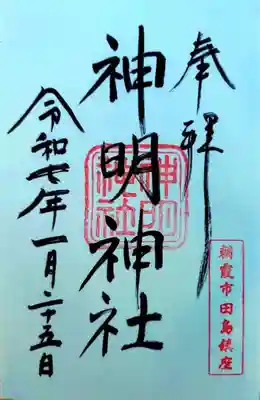 奉拝
神明神社
神明
神社
朝霞市田島鎮座
令和七年一月二十五日